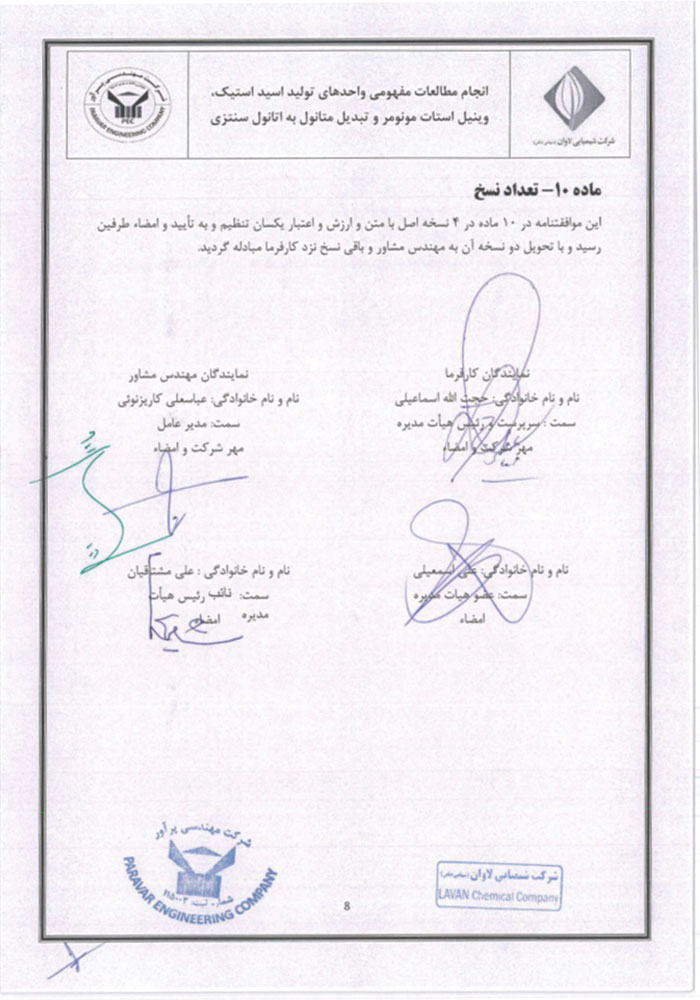 شرکت مهندسی پرآور
PEC
PARAVAR ENGINEERING COMPANY
انجام مطالعات مفهومی واحدهای تولید اسید استیک،
وینیل استات مونومر و تبدیل متانول به اتانول سنتزی
شرکت شیمیایی لاوان (سهامی خاص)
ماده ۱۰- تعداد نسخ
این موافقتنامه در ۱۰ ماده در ۴ نسخه اصل با متن و ارزش و اعتبار یکسان تنظیم و به تأیید و امضاء طرفین
رسید و با تحویل دو نسخه آن به مهندس مشاور و باقی نسخ نزد کارفرما مبادله گردید.
نمایندگان کارفرما
نام و نام خانوادگی: حجت الله اسماعیلی
سمت : سرپرست و رئیس هیأت مدیره
مهر شرکت و امضاء
نمایندگان مهندس مشاور
نام و نام خانوادگی: عباسعلی کاریزنوئی
سمت: مدیر عامل
مهر شرکت و امضاء
نام و نام خانوادگی: علی اسمعیلی
سمت: عضو هیات مدیره
امضاء
نام و نام خانوادگی : علی مشتاقیان
سمت: نائب رئیس هیأت
مدیره
امضاء
شرکت مهندسی پرآور
شماره ثبت: ۱۱۵۰۰۳
PARAVAR ENGINEERING COMPANY
شرکت شیمیایی لاوان (سهامی خاص)
LAVAN Chemical Company
8